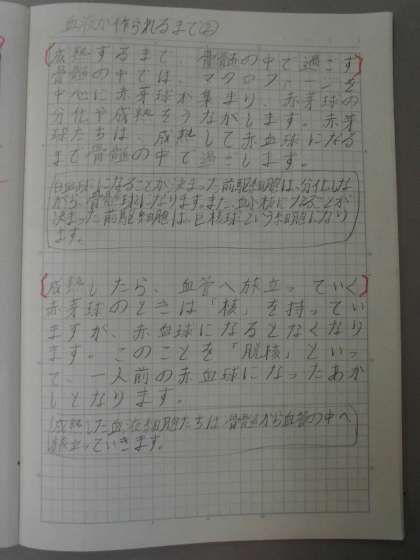 血液が作られるまで②
成熟するまで 骨髄の中で過ごす
骨髄の中では、マクロファージを
中心に赤芽球が集まり、赤芽球の
分化や成熟をうながします。赤芽
球たちは 成熟して赤血球になる
まで骨髄の中で過ごします。
白血球になることが決まった前駆細胞は、分化しな
がら、骨髄球になります。また、血小板になることが
決まった前駆細胞は、巨核球という細胞になり
ます。
成熟したら、血管へ旅立っていく
赤芽球のときは「核」を持ってい
ますが、赤血球になるとなくなり
ます。このことを「脱核」といっ
て、一人前の赤血球になったあか
しとなります。
成熟した血液細胞たちは骨髄から血管の中へ
旅立っていきます。